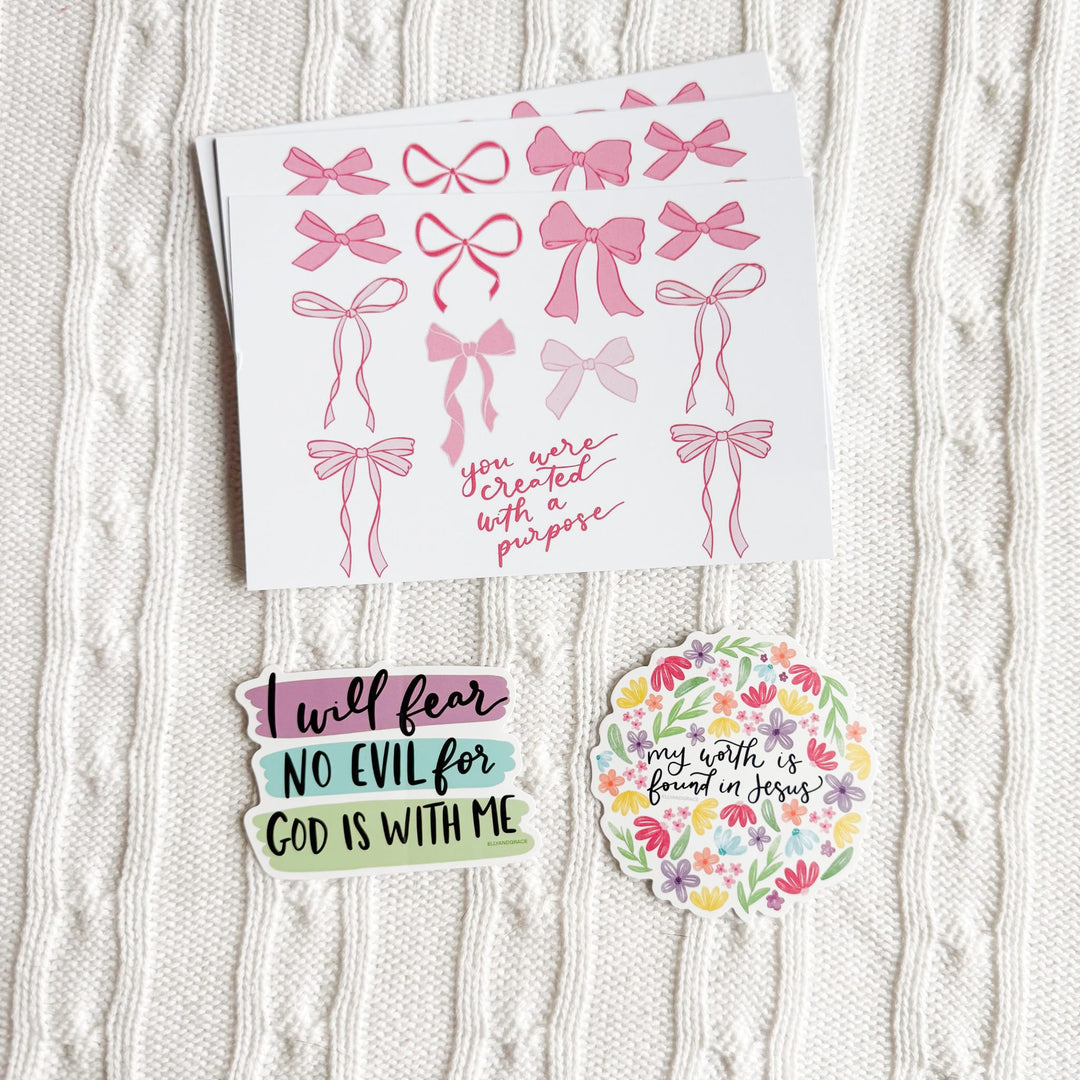 you were
created
with a
purpose
I will fear
NO EVIL for
GOD IS WITH ME
ELLIANDGRACE
my worth is
found in Jesus
ELLIANDGRACE